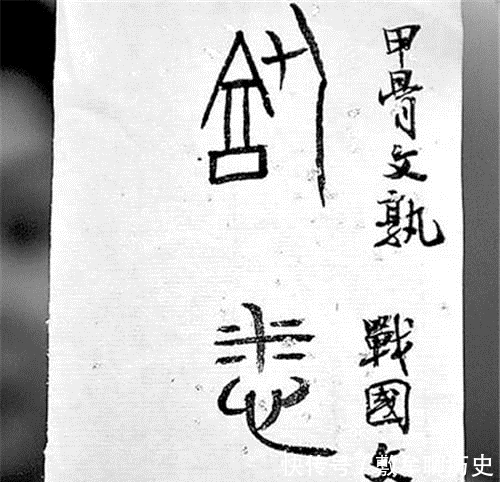 甲骨文孰
戰國文
快传号/牟聊历史